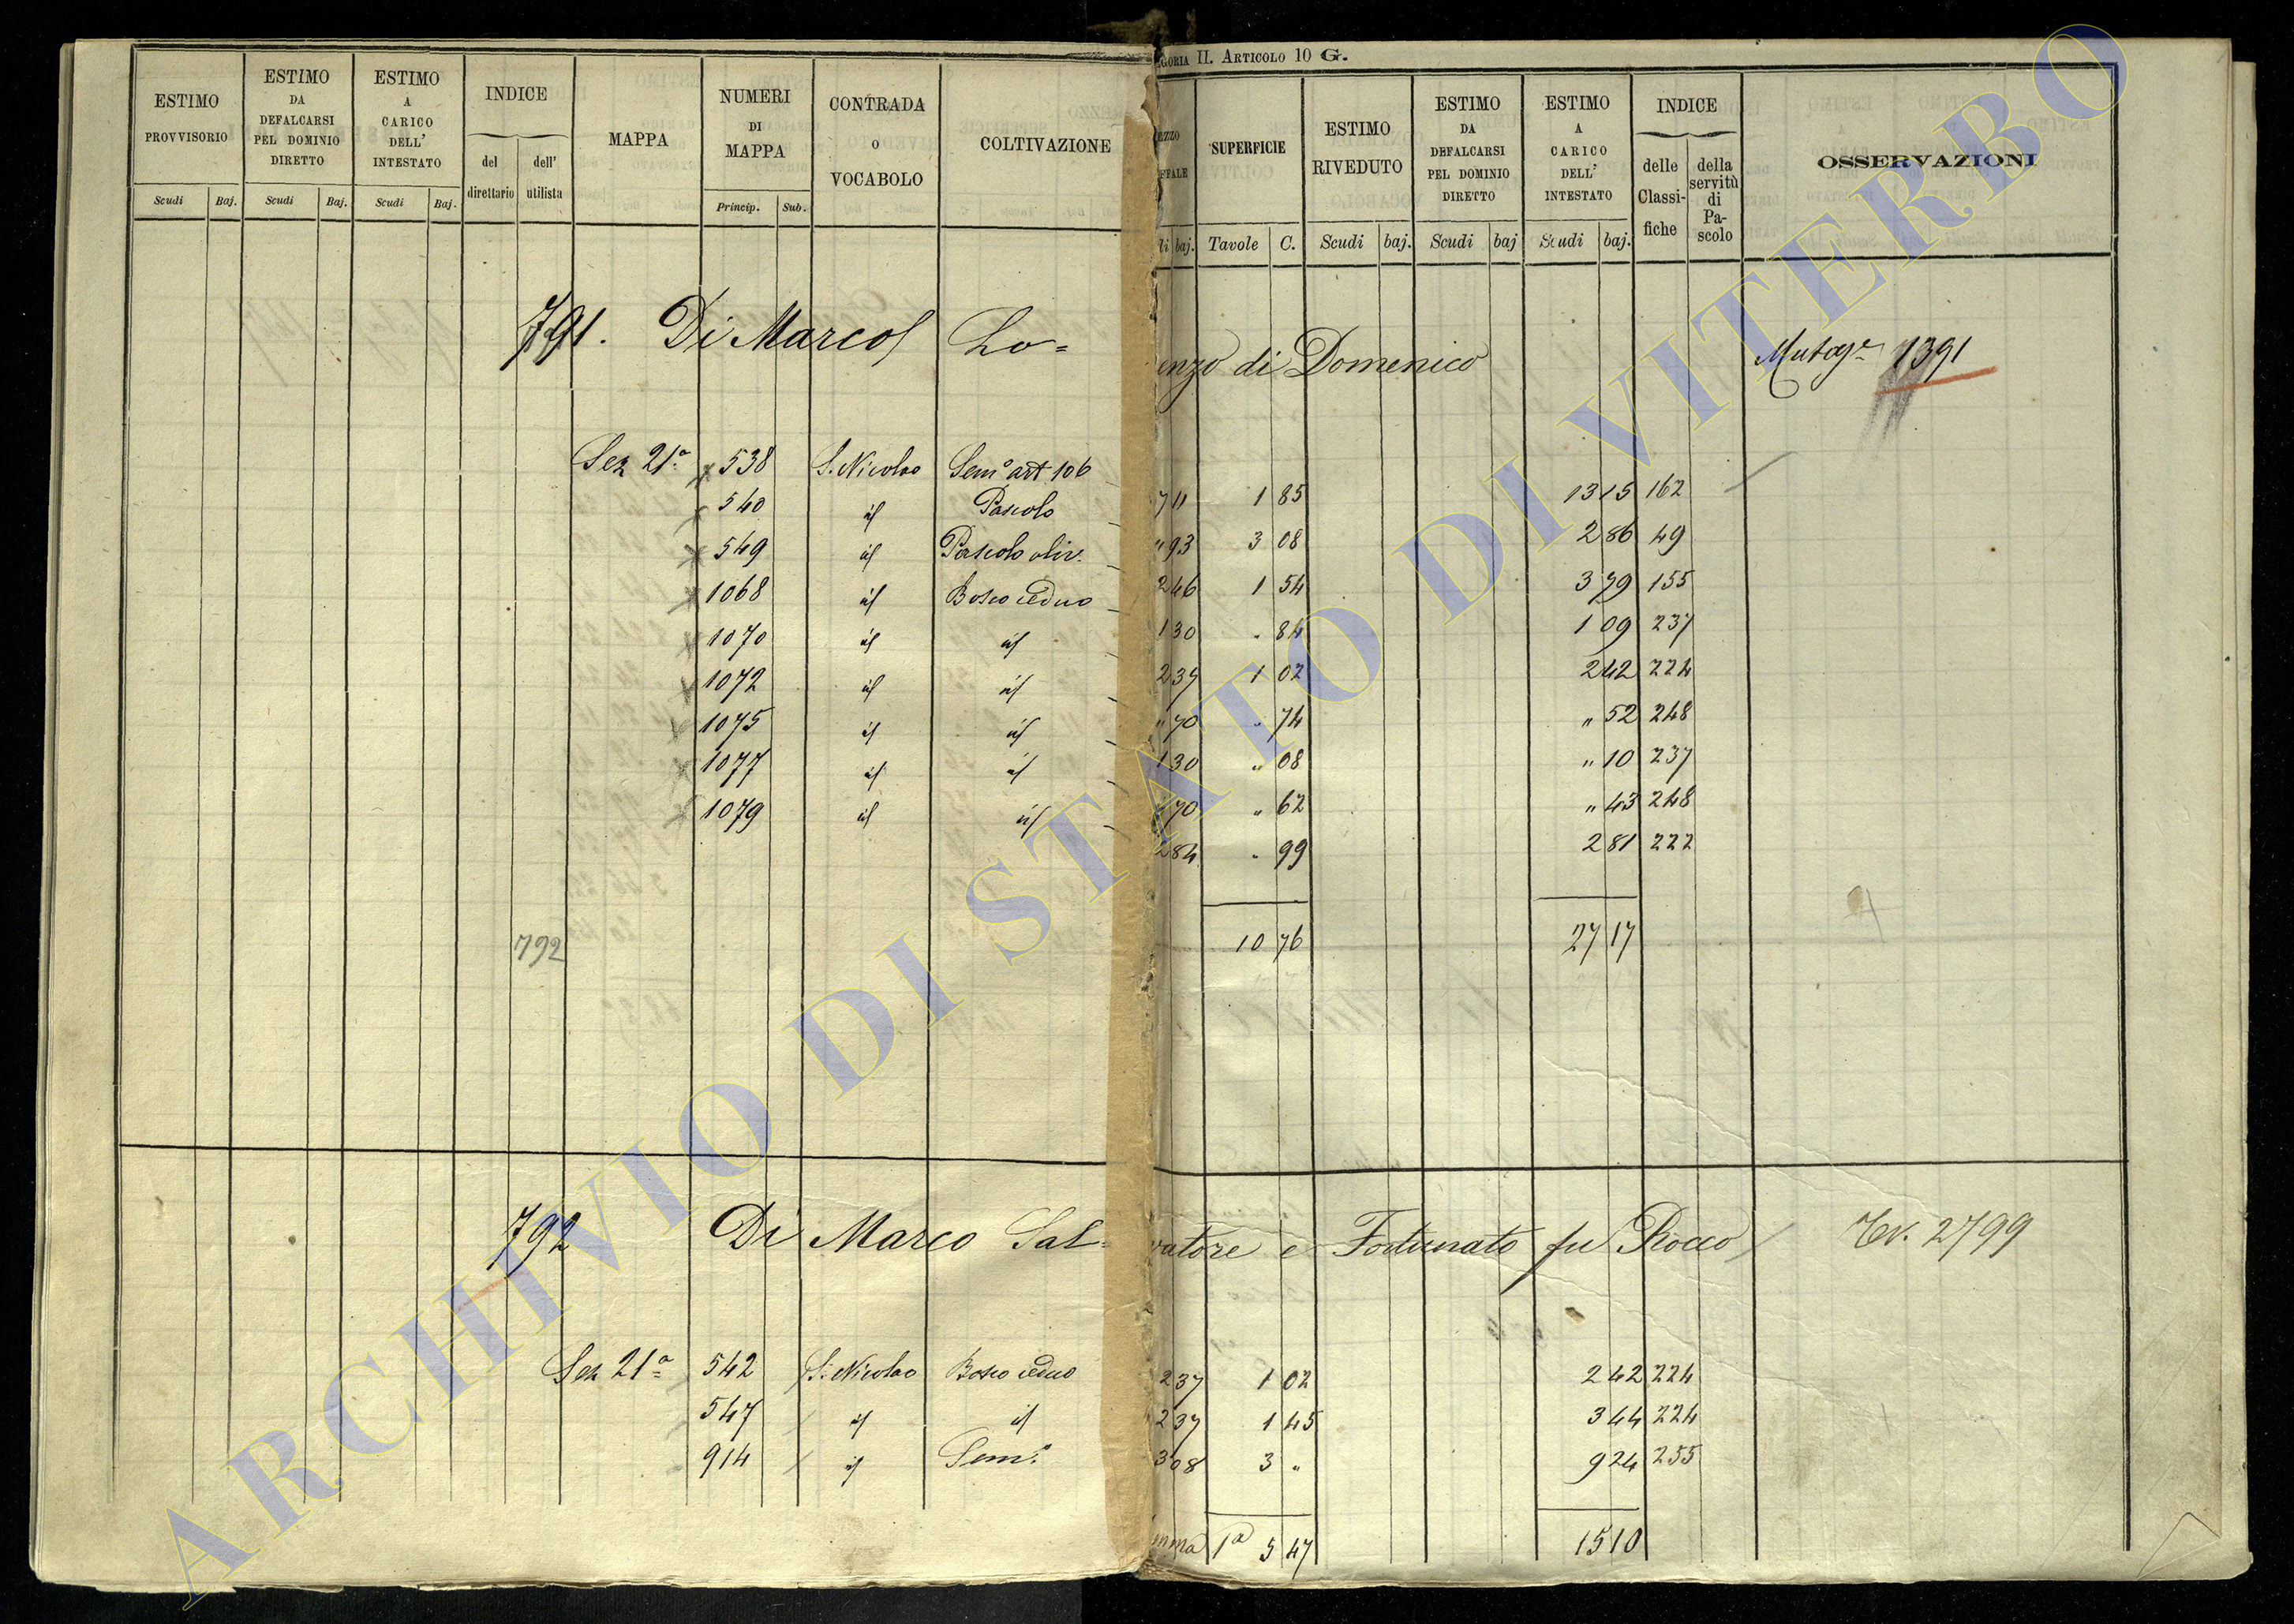 GORIA II. ARTICOLO 10 G.
ESTIMO PROVVISORIO
Scudi Baj.
ESTIMO DA DEFALCARSI PEL DOMINIO DIRETTO
Scudi Baj.
ESTIMO A CARICO DELL' INTESTATO
Scudi Baj.
INDICE
del direttario
dell' utilista
MAPPA
NUMERI DI MAPPA
Princip. Sub.
CONTRADA O VOCABOLO
COLTIVAZIONE
EZZO
baj.
SUPERFICIE
Tavole C.
ESTIMO RIVEDUTO
Scudi baj.
ESTIMO DA DEFALCARSI PEL DOMINIO DIRETTO
Scudi baj
ESTIMO A CARICO DELL' INTESTATO
Scudi baj.
INDICE
delle Classifiche
della servitù di Pascolo
OSSERVAZIONI
791. Di Marco Lo=
enzo di Domenico
Mutage 1391
Sez 21a 538 S. Nicolao Semo art 106
540 id Pascolo
549 id Pascolo oliv.
1068 id Bosco ceduo
1070 id id
1072 id id
1075 id id
1077 id id
1079 id id
711 1 85 13 15 162
" 93 3 08 2 86 49
2 46 1 54 3 79 155
1 30 " 84 1 09 237
2 37 1 02 2 42 224
" 70 " 74 " 52 248
1 30 " 08 " 10 237
70 " 62 " 43 248
2 84 " 99 2 81 222
792
10 76 27 17
792 Di Marco Sal=
vatore e Fortunato fu Rocco
Tev. 2799
Sez 21a 542 S. Nicolao Bosco ceduo
547 id id
914 id Semo
2 37 1 02 2 42 224
2 37 1 45 3 44 224
3 08 3 " 9 24 255
mma 1a 5 47 15 10
ARCHIVIO DI STATO DI VITERBO